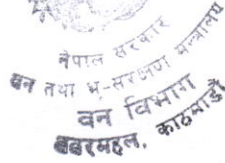 नेपाल सरकार
वन तथा भू-संरक्षण मन्त्रालय
वन विभाग
बबरमहल, काठमाडौँ